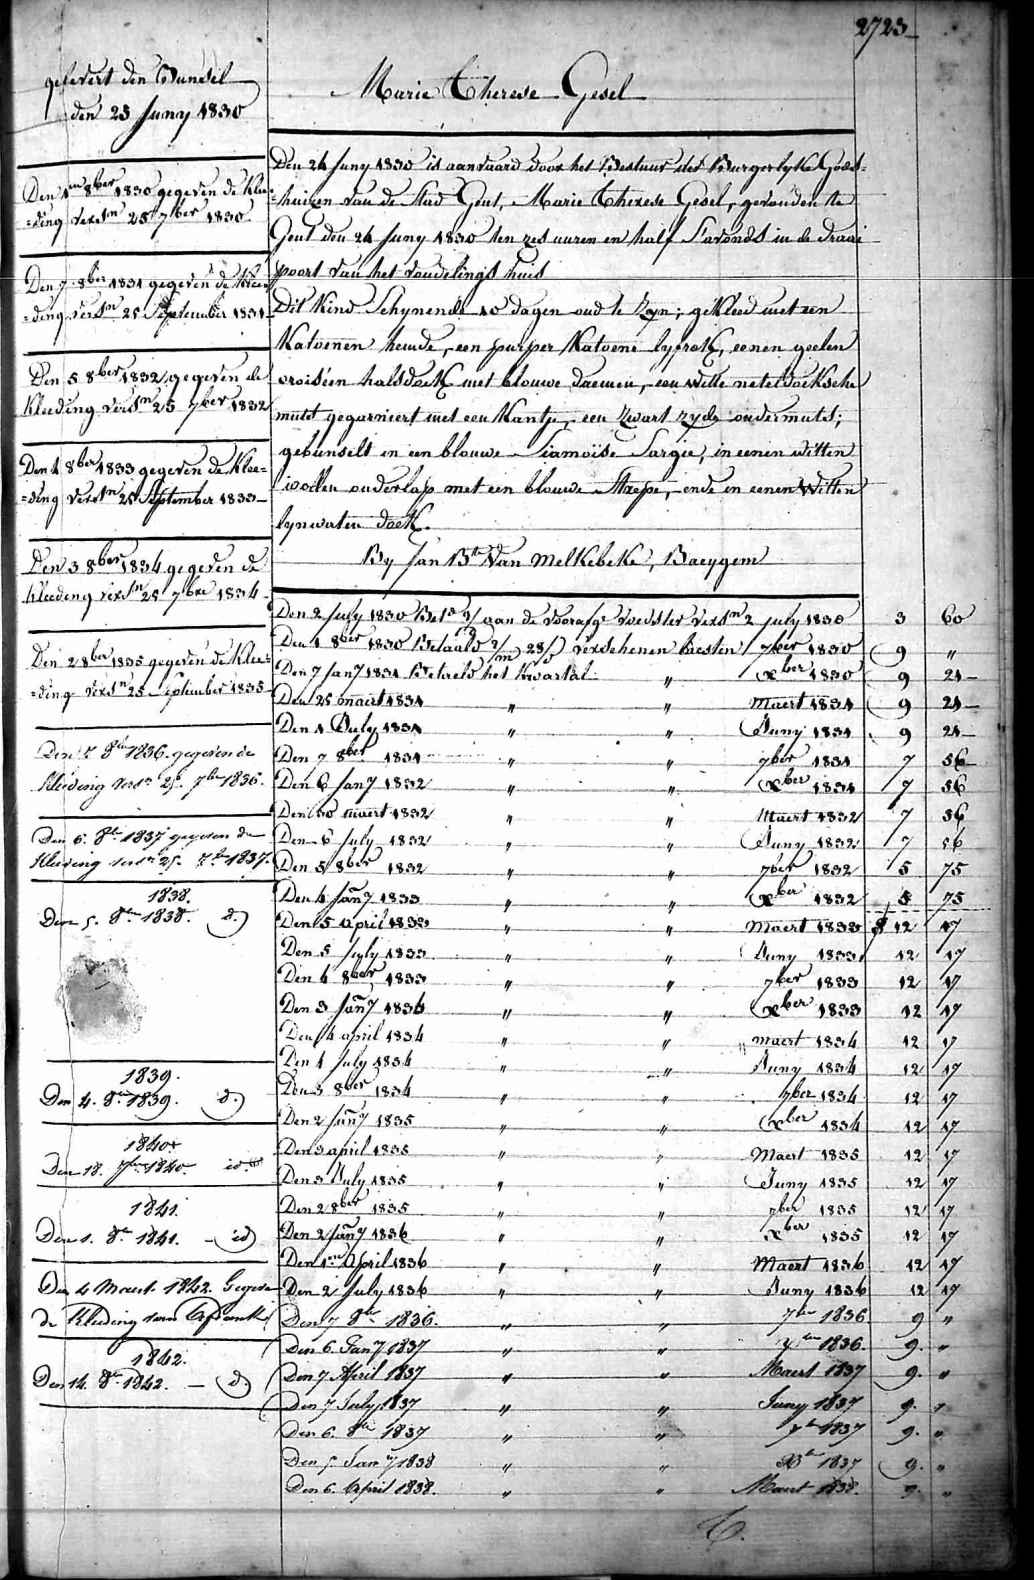 2723
gelevert den Bundsel
den 25 Juny 1830
Den 1en 8ber 1830 gegeven de klee=
=ding verstn 25 7ber 1830
Den 7 8ber 1831 gegeven de klee=
=ding verstn 25 September 1831
Den 5 8ber 1832 gegeven de
kleeding verstn 25 7ber 1832
Den 1 8ber 1833 gegeven de klee=
=ding verstn 25 September 1833
Den 3 8ber 1834 gegeven de
kleeding verstn 25 7bre 1834
Den 2 8ber 1835 gegeven de klee=
=ding verstn 25 September 1835
Den 7 8ber 1836 gegeven de
kleeding verstn 25 7ber 1836.
Den 6. 8br 1837 gegeven de
kleeding verstn 25. 7br 1837.
1838.
Den 5. 8br 1838. d.)
1839.
Den 4. 8br 1839. d.)
1840.
Den 18. 7br 1840. id
1841.
Den 1. 8br 1841. — id)
Den 4 Maert 1842. Gegeven
de Kleeding van
1842.
Den 14. 8br 1842. — d)
Marie Therese Gesel
Den 24 Juny 1830 is aanvaard door het Bestuer der Burgerlyke Gods=
=huizen van de Stad Gent, Marie Therese Gesel, gevonden te
Gent den 24 Juny 1830 ten zes uuren en half S'avonds in de draai
poort van het vondelings huis
Dit Kind Schynende 10 dagen oud te Zyn; gekleed met een
Katoenen hemde, een purper Katoene lyfrok, eenen geelen
croiséen halsdoek met blouwe daemen, een witte neteldoeksche
muts gegarniert met een Kantje, een zwart zyde ondermuts;
gebunselt in een blouwe Siamoise Sargie, in eenen witten
wollen onderlap met een blouwe Strepe, ende in eenen Witten
lynwaten doek.
By Jan Bte Van Melkebeke, Baeygem
Den 2 July 1830 Betd aan de voorafge voedster verstn 2 july 1830 3 60
Den 1 8ber 1830 Betaald verschenen 7ber 1830 9 "
Den 7 Jany 1831 Betaeld het kwartal " xber 1830 9 24
Den 25 maert 1831 " " Maert 1831 9 24
Den 1 July 1831 " " Juny 1831 9 24
Den 7 8ber 1831 " " 7ber 1831 7 56
Den 6 Jany 1832 " " xber 1831 7 56
Den 30 maert 1832 " " Maert 1832 7 56
Den 6 July 1832 " " Juny 1832 7 56
Den 5 8ber 1832 " " 7ber 1832 5 75
Den 4 Jany 1833 " " xber 1832 5 75
Den 5 april 1833 " " Maert 1833 12 17
Den 5 July 1833 " " Juny 1833 12 17
Den 1 8ber 1833 " " 7ber 1833 12 17
Den 3 Jany 1834 " " xber 1833 12 17
Den 4 april 1834 " " maert 1834 12 17
Den 1 July 1834 " " Juny 1834 12 17
Den 3 8ber 1834 " " 7ber 1834 12 17
Den 2 Jany 1835 " " xber 1834 12 17
Den 3 april 1835 " " Maert 1835 12 17
Den 3 July 1835 " " Juny 1835 12 17
Den 2 8ber 1835 " " 7ber 1835 12 17
Den 2 Jany 1836 " " xber 1835 12 17
Den 1en April 1836 " " Maert 1836 12 17
Den 2 July 1836 " " Juny 1836 12 17
Den 7 8br 1836. " " 7ber 1836 9 "
Den 6. Jany 1837 " " xber 1836. 9. "
Den 7 April 1837 " " Maert 1837 9. "
Den 7 July 1837 " " Juny 1837 9. "
Den 6. 8br 1837 " " 7br 1837 9. "
Den 5. Jany 1838 " " Xbr 1837 9. "
Den 6. April 1838. " " Maert 1838. 9. "